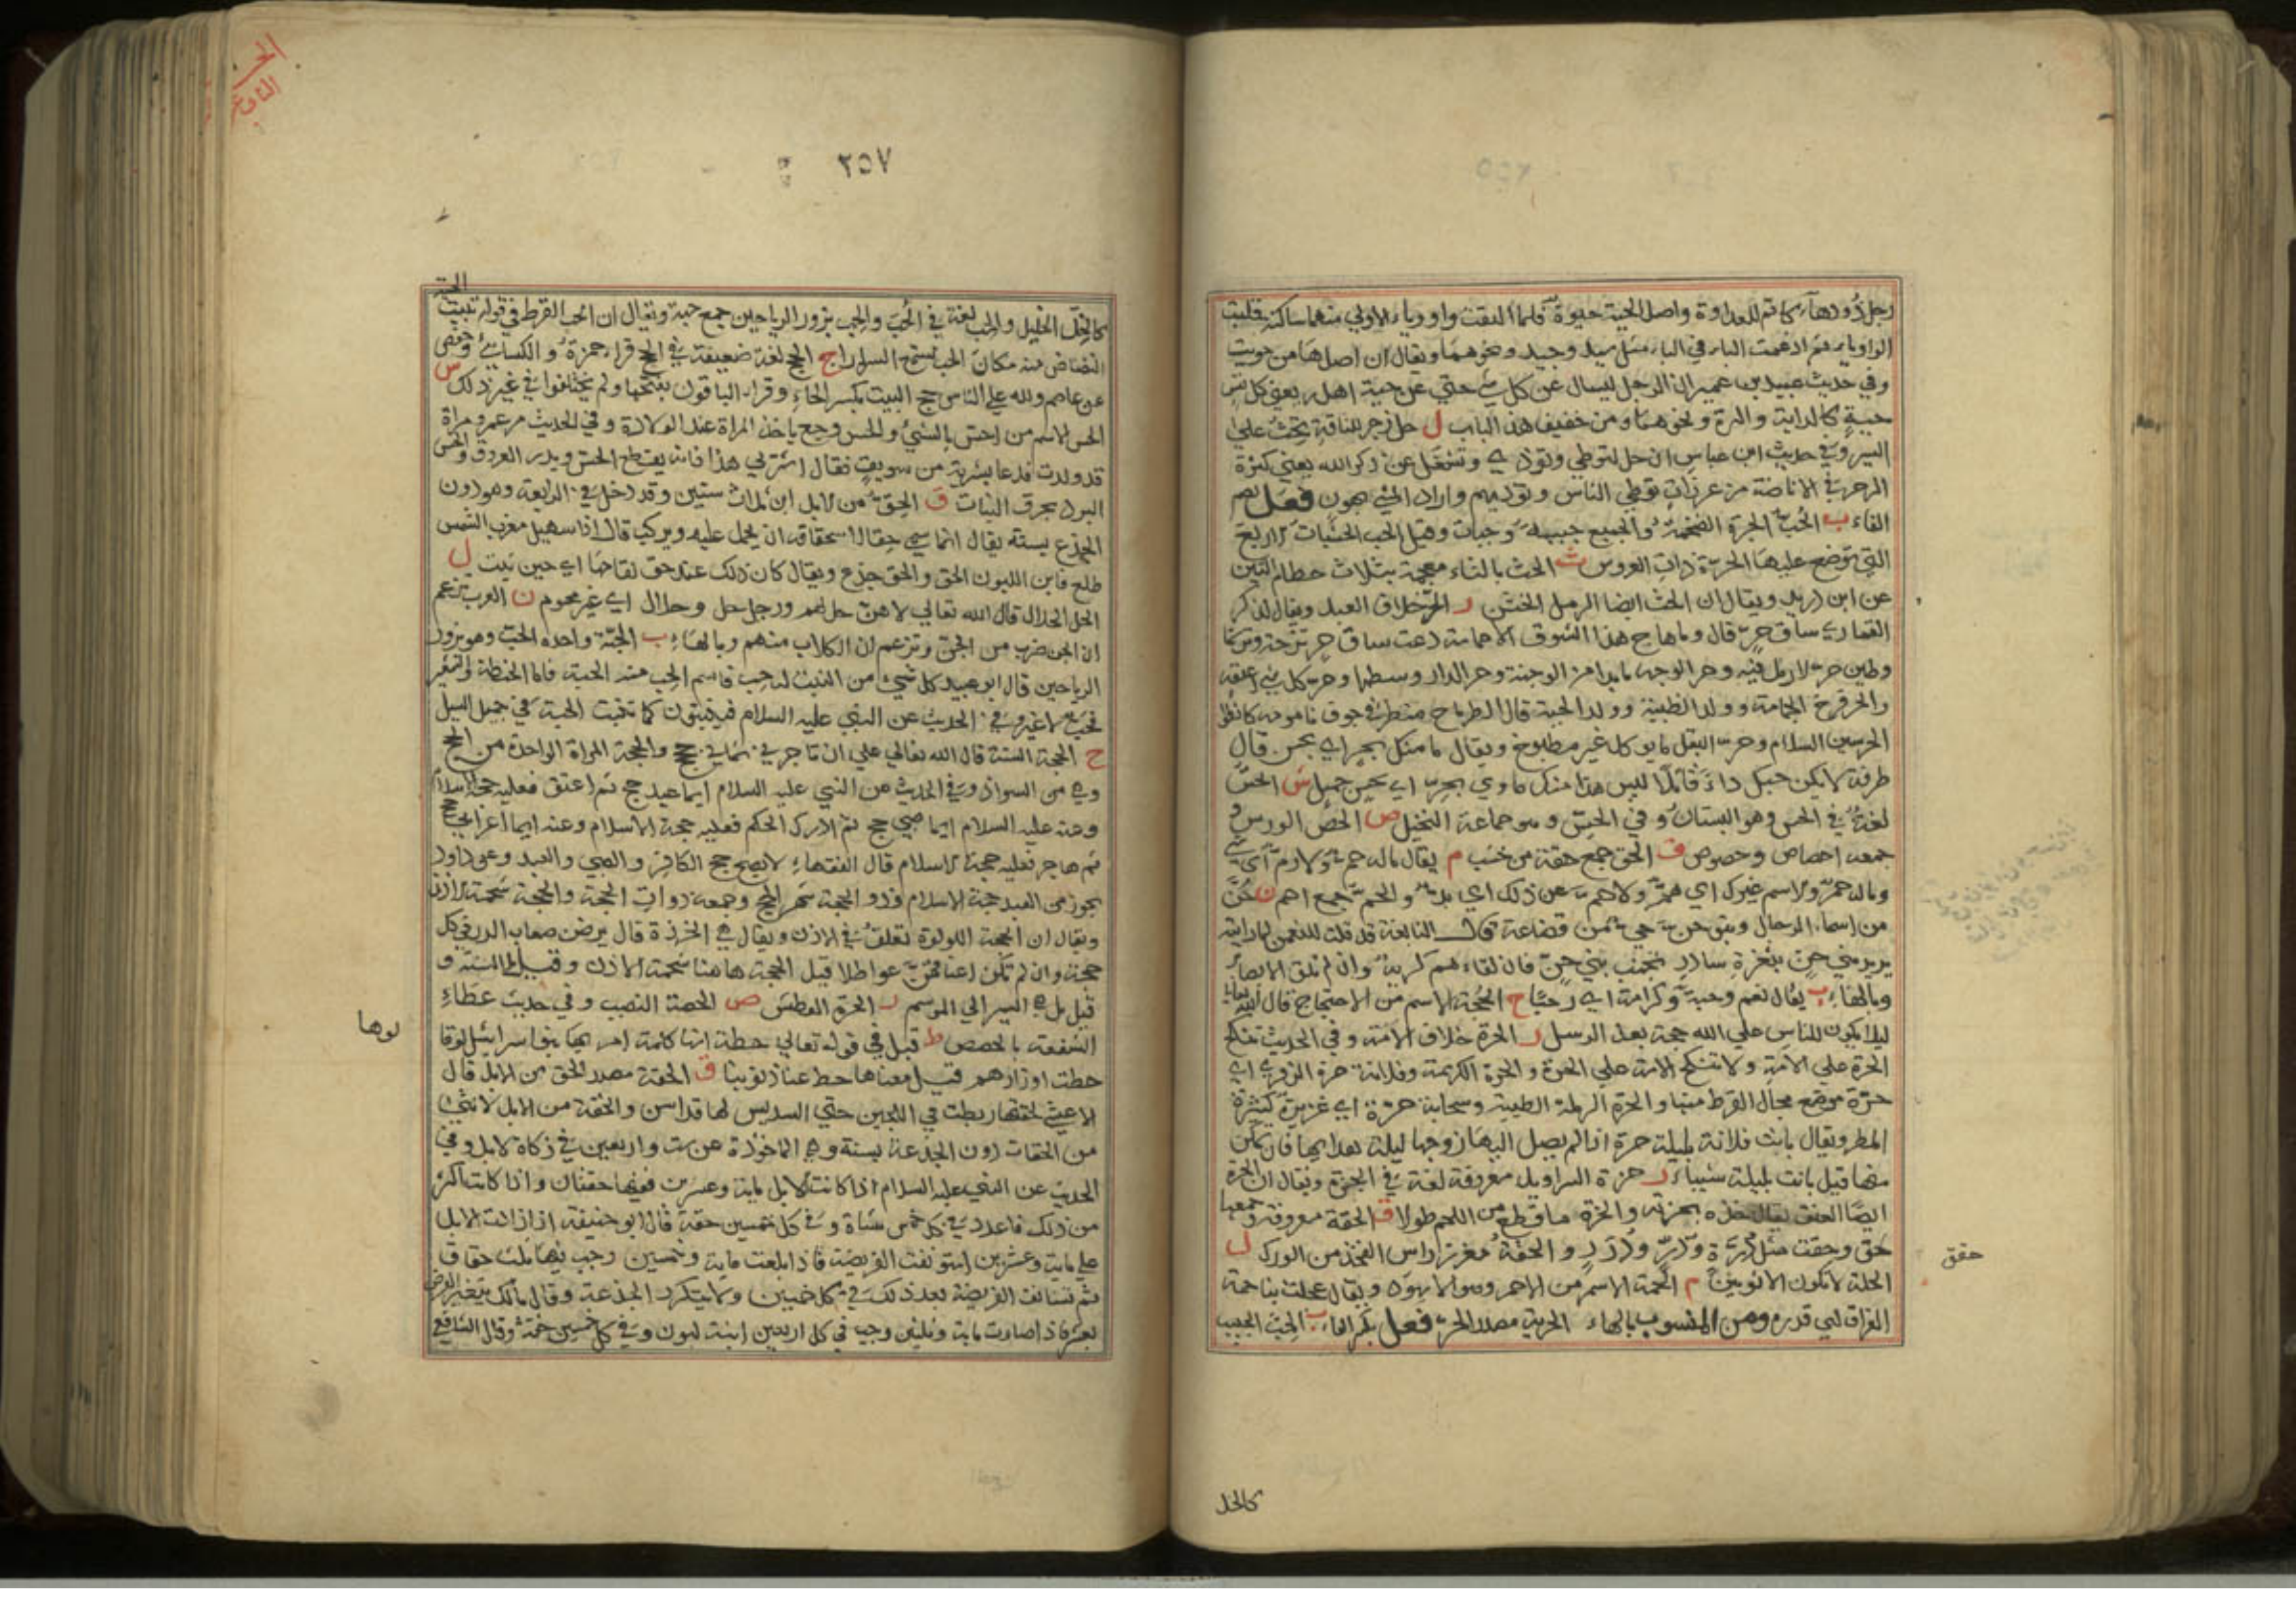 رجل دُودهاء كما تم للعداوة واصل الحية حيوة فلما التقت واو وياء والاولي منهما ساكنة قلبت
الواو ياء ثم ادغمت الياء في الياء مثل سيد وجيد ونحوهما ويقال ان اصلها من حويت
وفي حديث عبيد بن عمير ان الرجل ليسال عن كل شي حتي عن حية اهله يعني كل نفس
حية كالدابة والهرة ونحوهما ومن خفيف هذا الباب ل حل زجر للناقة يحث علي
السير وفي حديث ابن عباس ان حل لتوطي وتوذي وتشغل عن ذكر الله يعني كثرة
الزجر في الافاضة من عرفات توطي الناس وتوذيهم واراد المشي بهون فعل بضم
الفاء ب الحُبّ الجرة الضخمة والجميع حببة وحباب وقيل الحب الخشبات الاربع
التي توضع عليها الجرة ذات العروس ث الحث بالثاء معجمة بثلاث حطام التبن
عن ابن دريد ويقال ان الحث ايضا الرمل الخشن ر الحُرّ خلاف العبد ويقال لذكر
القماري ساق حر قال وما هاج هذا الشوق الا حمامة دعت ساق حر ترحة وترنما
وطين حر لا رمل فيه وحر الوجه ما بدا من الوجنة وحر الدار وسطها وحر كل شي اعتقه
والحر فرخ الحمامة وولد الظبية وولد الحية قال الطرماح منطو في جوف ناموسه كانطوا
الحر بين السلام وحر البقل ما يوكل غير مطبوخ ويقال ما هذا منك بحر اي بحسن قال
طرفة لا يكن حبك داء قاتلا ليس هذا منك ماوي بحر اي بحسن جميل ش الحش
لغة في الحش وهو البستان وفي الحش وهو جماعة النخيل ص الحص الورس و
جمعه احصاص وحصوص ق الحق جمع حقة من خشب م يقال ماله حم ولا رم اي شي
وماله حم ولا سم غيرك اي هم ولا حم عن ذلك اي بد والحم جمع احم ن حُنّ
من اسماء الرجال وبنو حن حي من قضاعة قال النابغة قد قلت للنعمن لما رايته
يريد بني حن بثغرة صادر تجنب بني حن فان لقاءهم كريه وان لم تلق الا بصابر
وبالهاء ب يقال نعم وحبة وكرامة اي وحبا ج الحجة الاسم من الاحتجاج قال الله تعالي
ليلا يكون للناس علي الله حجة بعد الرسل ر الحرة خلاف الامة وفي الحديث تنكح
الحرة علي الامة ولا تنكح الامة علي الحرة والحرة الكريمة وفلانة حرة الذفري اي
حرة موضع مجال القرط منها والحرة الرملة الطيبة وسحابة حرة اي غزيرة كثيرة
المطر ويقال باتت فلانة بليلة حرة اذا لم يصل اليها زوجها ليلة هدائها فان تمكن
منها قيل باتت بليلة شيباء ز حزة السراويل معروفة لغة في الحجزة ويقال ان الحزة
ايضا العنق يقال اخذه بحزته والحزة ما قطع من اللحم طولا ق الحقة معروفة وجمعها
حق وحقق مثل دُرّة ودُرّ ودُرَر والحقة مغرز راس الفخذ من الورك ل
الحلة لا تكون الا ثوبين م الحمة الاسم من الاحم وهو الاسود ويقال عجلت بنا حمة
الفراق اي قدره ومن المنسوب بالهاء الحرية مصدر الحر فعل بكسر الفاء ب الحِب الحبيب
حقق
كالخل
٢٥٧
كالخِلّ الخليل والحِب لغة في الحُبّ والحِب بزور الرياحين جمع حبة ويقال ان الحب القرط في قوله تبيت الحية
النضناض منه مكان الحب يستمع السرارا ج الحج لغة ضعيفة في الحج قرا حمزة والكسائي وحفص
عن عاصم ولله علي الناس حج البيت بكسر الحاء وقرا الباقون بفتحها ولم يختلفوا في غير ذلك س
الحس الاسم من احس بالشيء والحس وجع ياخذ المراة عند الولادة وفي الحديث مر عمر بمراة
قد ولدت فدعا بشربة من سويق فقال اشربي هذا فانه يقطع الحس ويدر العروق والحس
البرد يحرق النبات ق الحِق من الابل ابن ثلاث سنين وقد دخل في الرابعة وهو دون
الجذع بسنة يقال انما سمي حقا لاستحقاقه ان يحمل عليه ويركب قال اذا سهيل مغرب الشمس
طلع فابن اللبون الحق والحق جذع ويقال كان ذلك عند حق لقاحها اي حين ثبت ل
الحل الحلال قال الله تعالي لا هن حل لهم ورجل حل وحلال اي غير محرم ن العرب تزعم
ان الحن ضرب من الجن وتزعم ان الكلاب منهم وبالهاء ب الحبّة واحدة الحب وهو بزور
الرياحين قال ابو عبيد كل شيء من النبت له حب فاسم الحب منه الحبة فاما الحنطة والشعير
فحب لا غير وفي الحديث عن النبي عليه السلام فينبتون كما تنبت الحبة في حميل السيل
ج الحجة السنة قال الله تعالي علي ان تاجرني ثماني حجج والحجة المراة الواحدة من الحج
وهي من الشواذ وفي الحديث عن النبي عليه السلام ايما عبد حج ثم اعتق فعليه حجة الاسلام
وعنه عليه السلام ايما صبي حج ثم ادرك الحكم فعليه حجة الاسلام وعنه ايما اعرابي حج
ثم هاجر فعليه حجة الاسلام قال الفقهاء لا يصح حج الكافر والصبي والعبد وعن داود
يجوز من العبد حجة الاسلام وذو الحجة شهر الحج وجمعه ذوات الحجة والحجة شحمة الاذن
ويقال ان الحجة اللولوة تعلق في الاذن ويقال هي الخرزة قال يرضن صعاب الدر في كل
حجة وان لم تكن اعناقهن عواطلا قيل الحجة هاهنا شحمة الاذن وقيل السنة و
قيل بل هي السير الي الموسم ر الحرة العطش ص الحصة النصيب وفي حديث عطاء
الشفعة بالحصص ط قيل في قوله تعالي حطة انها كلمة امر بها بنو اسرائيل لو قالوها
حطت اوزارهم قيل معناها حط عنا ذنوبنا ق الحقة مصدر الحق من الابل قال
الاعشي لحقتها ربطت في اللجين حتي السديس لها قد اسن والحقة من الابل الانثي
من الحقات دون الجذعة بسنة وهي الماخوذة عن ست واربعين في زكاة الابل وفي
الحديث عن النبي عليه السلام اذا كانت الابل ماية وعشرين ففيها حقتان واذا كانت اكثر
من ذلك فاعدد في كل خمس شاة وفي كل خمسين حقة قال ابو حنيفة اذا زادت الابل
علي ماية وعشرين استونفت الفريضة فاذا بلغت ماية وخمسين وجب فيها ثلث حقاق
ثم تستانف الفريضة بعد ذلك في كل خمسين ولا يتكرر الجذعة وقال مالك يتغير الفرض
بعشر فاذا صارت ماية وثلثين وجب في كل اربعين ابنة لبون وفي كل خمسين حقة وقال الشافعي
لوها